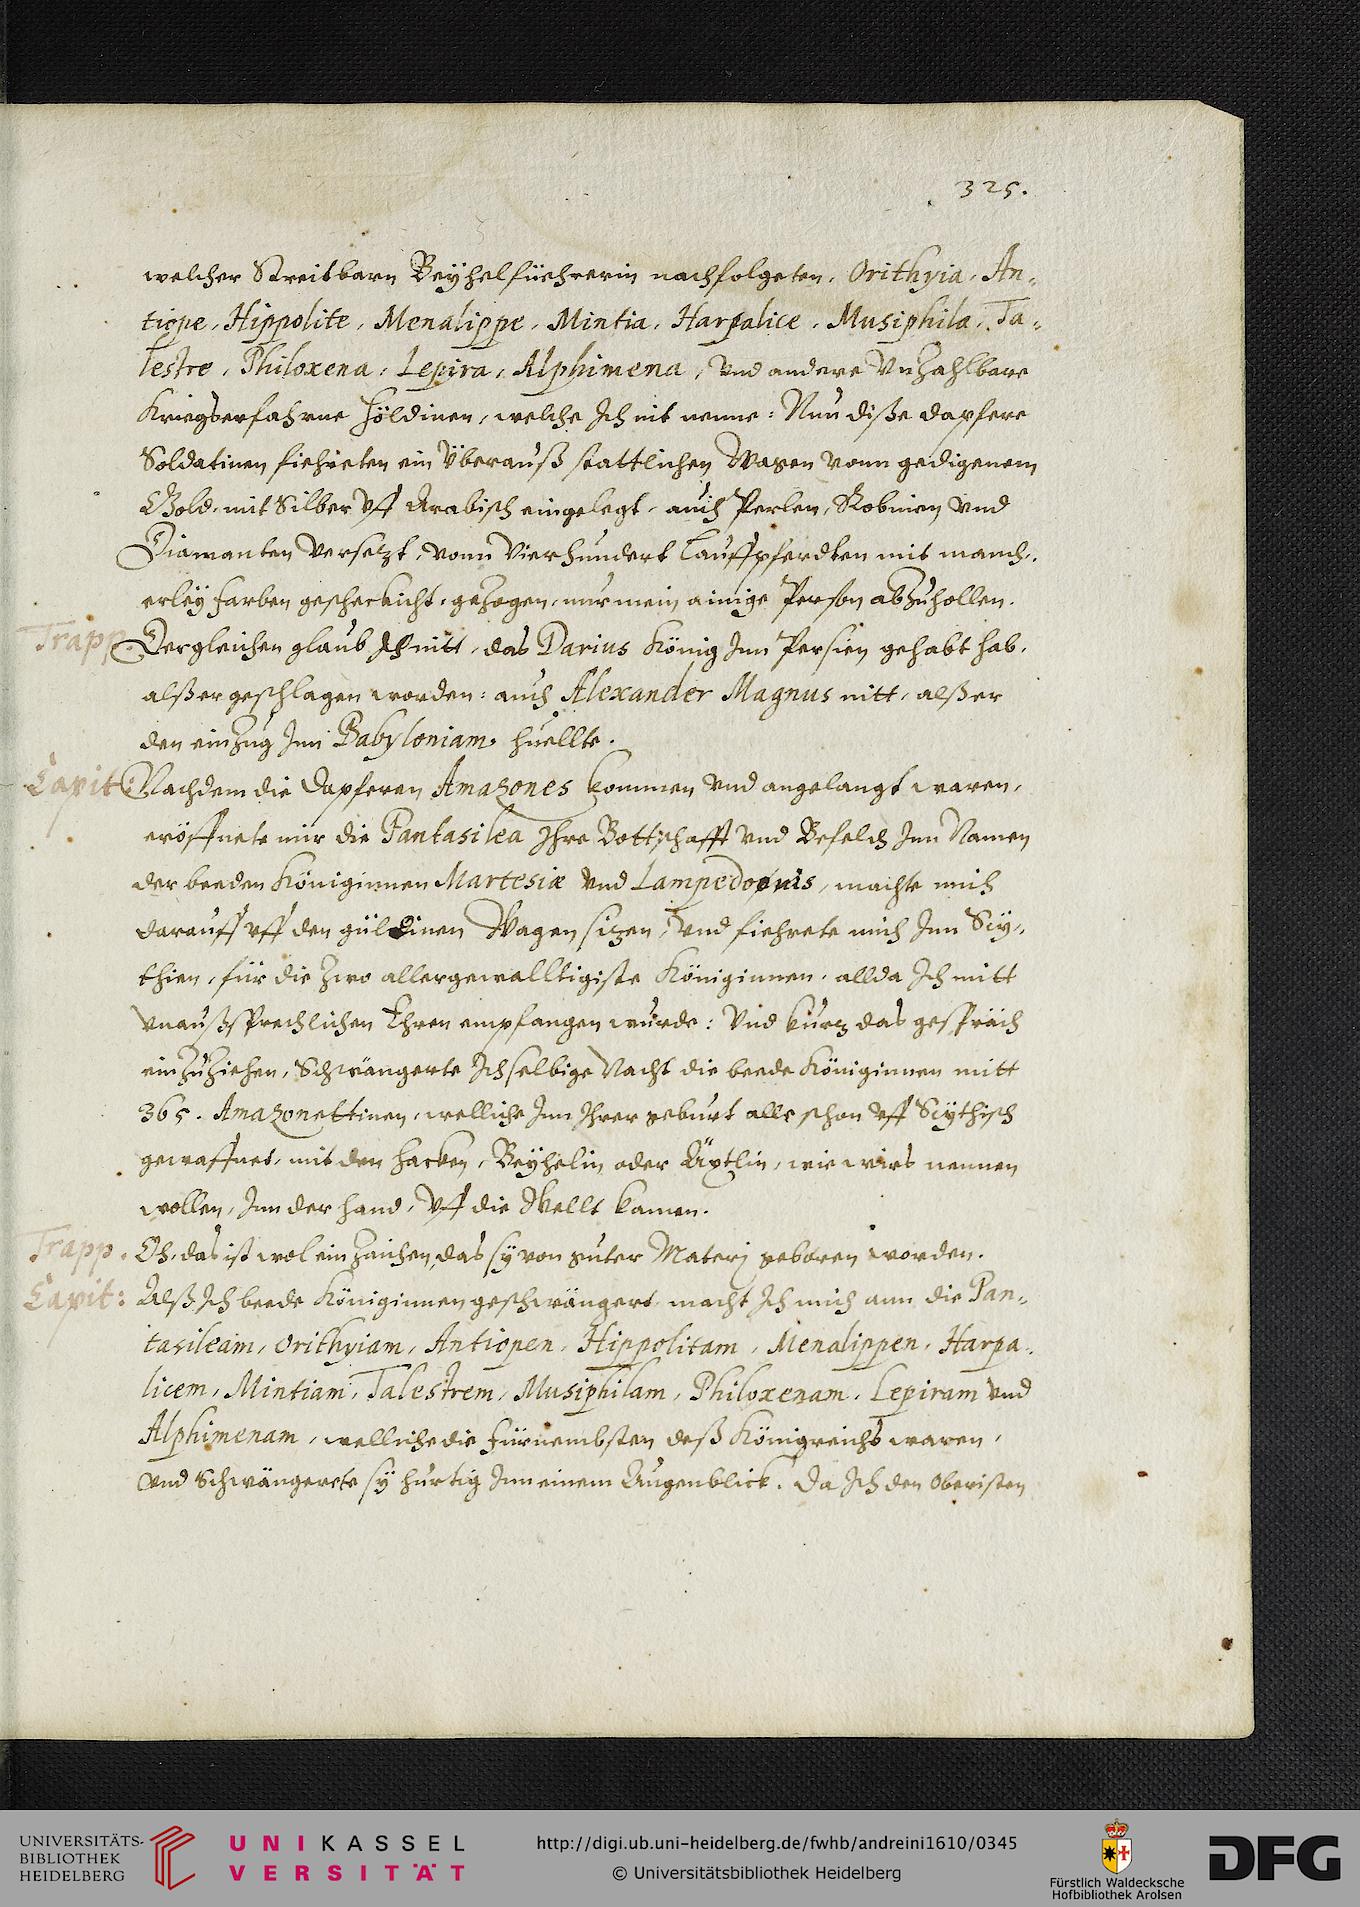 325.
welcher Streitbarn Beÿhelfüehrerin nachfolgeten, Orithyia, An-
tiope, Hippolite, Menalippe, Mintia, Harpalice, Musiphila, Ta-
lestre, Philoxena, Lepira, Alphimena, Vnd andere Vnzahlbare
Kriegserfahrne Höldinen, welche Ich nit nenne: Nun diße dapfere
Soldatinen fiehreten ein Überauß stattlichen Wagen vonn gedigenem
Gold, mit Silber Vff Arabisch eingelegt, auch Perlen, Robinen Vnd
Diamanten Versezt, vonn Vierhundert Lauffpferdten mit manch-
erleÿ farben gescheckicht, gezogen, nur mein ainige Person abzuhollen.
Trapp. Dergleichen glaub Ich nitt, das Darius König Inn Persien gehabt hab,
alß er geschlagen worden: auch Alexander Magnus nitt, alß er
den einzug Inn Babyloniam huellte.
Capit: Nachdem die Dapferen Amazones kommen vnd angelangt waren,
eröffnete mir die Pantasilea Ihre Bottschafft Vnd Befelch Inn Namen
der beeden Königinnen Martesiæ Vnd Lampedonis, machte mich
darauff Vff den güldinen Wagen sizen, Vnd fiehrete mich Inn Scÿ-
thien, für die zwo allergewalltigiste Königinnen, allda Ich mitt
Vnaußsprechlichen Ehren empfangen wurde: Vnd kurz das gespräch
einzuziehen, Schwängerte Ich selbige Nacht die beede Königinnen mitt
365. Amazonettinen, welliche Inn Ihrer geburt alle schon Vff Scÿthisch
gewaffnet, mit den hacken, Beÿhelin oder Äxtlin, wie wirs nennen
wollen, Inn der hand, Vff die Wellt kamen.
Trapp. Oh, das ist wol ein zaichen, das sÿ von guter Materj geboren worden.
Capit: Alß Ich beede Königinnen geschwängert, macht Ich mich ann die Pan-
tasileam, Orithyiam, Antiopen, Hippolitam, Menalippen, Harpa-
licem, Mintiam, Talestrem, Musiphilam, Philoxenam, Lepiram Vnd
Alphimenam, welliche die fürnembsten deß Königreichs waren,
Vnd Schwängerete sÿ hurtig Inn einem Augenblick. Da Ich den Obristen
UNIVERSITÄTS-
BIBLIOTHEK
HEIDELBERG
UNIKASSEL
VERSITÄT
http://digi.ub.uni-heidelberg.de/fwhb/andreini1610/0345
© Universitätsbibliothek Heidelberg
Fürstlich Waldecksche
Hofbibliothek Arolsen
DFG